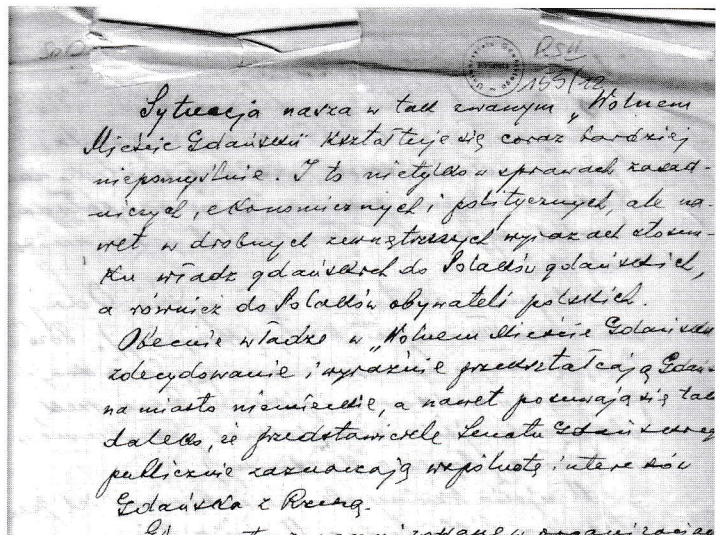 RSH
155/12
Sytuacja nasza w tak zwanym „Wolnem
Mieście Gdańsku" kształtuje się coraz bardziej
niepomyślnie. I to nietylko w sprawach zasad-
niczych, ekonomicznych i politycznych, ale na-
wet w drobnych zewnętrznych wyrazach stosun-
ku władz gdańskich do Polaków gdańskich,
a również do Polaków obywateli polskich.
Obecnie władze w „Wolnem Mieście Gdańsku
zdecydowanie i wyraźnie przekształcają Gdańs
na miasto niemieckie, a nawet posuwają się tak
daleko, że przedstawiciele Senatu Gdańskieg
publicznie zaznaczają wspólnotę interesów
Gdańska z Rzeszą.